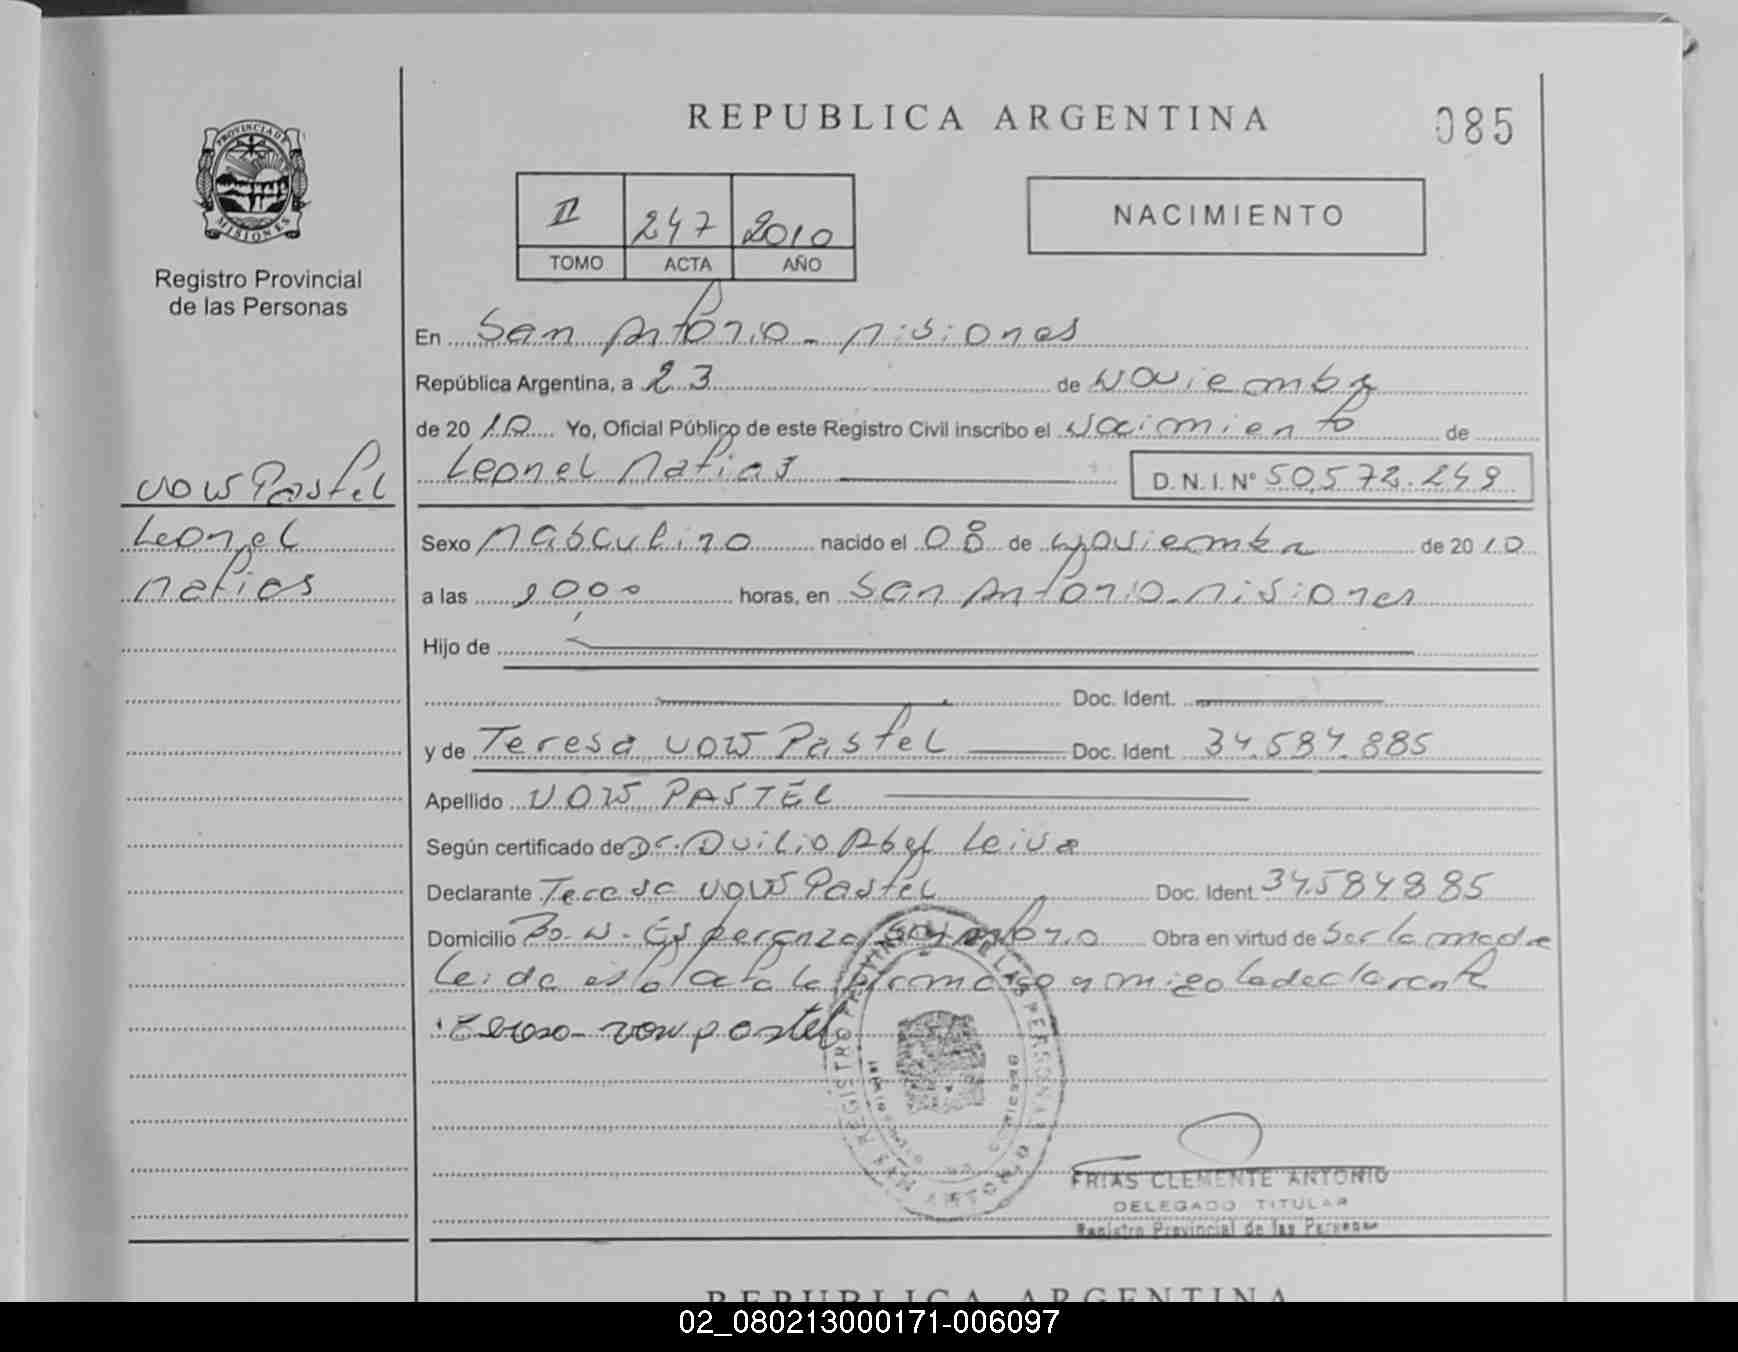 REPUBLICA ARGENTINA
085
PROVINCIA DE MISIONES
Registro Provincial
de las Personas
II 247 2010
TOMO ACTA AÑO
NACIMIENTO
En San Antonio - Misiones
República Argentina, a 23 de Noviembre
de 2010 Yo, Oficial Público de este Registro Civil inscribo el Nacimiento de
Leonel Matias D. N. I. N° 50.572.249
VOW Pastel
Leonel
Matias
Sexo Masculino nacido el 08 de Noviembre de 2010
a las horas, en San Antonio - Misiones
Hijo de
Doc. Ident.
y de Teresa VOW Pastel Doc. Ident. 34.584.885
Apellido VOW PASTEL
Según certificado de Dr. Duilio Abel Leiva
Declarante Teresa VOW Pastel Doc. Ident. 34.584.885
Domicilio Bo. N. Esperanza San Antonio Obra en virtud de Ser la madre
Leida esta acta la firma conmigo la declarante
vow pastel
REGISTRO PROVINCIAL DE LAS PERSONAS
SAN ANTONIO
FRIAS CLEMENTE ANTONIO
DELEGADO TITULAR
Registro Provincial de las Personas
REPUBLICA ARGENTINA
02_080213000171-006097